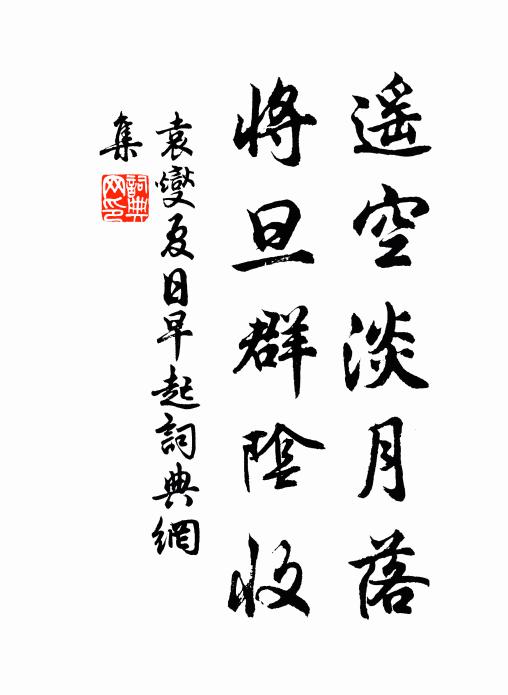 遥空淡月落
将旦群陰收
袁燮夏日早起詞典網
集
詞典網印